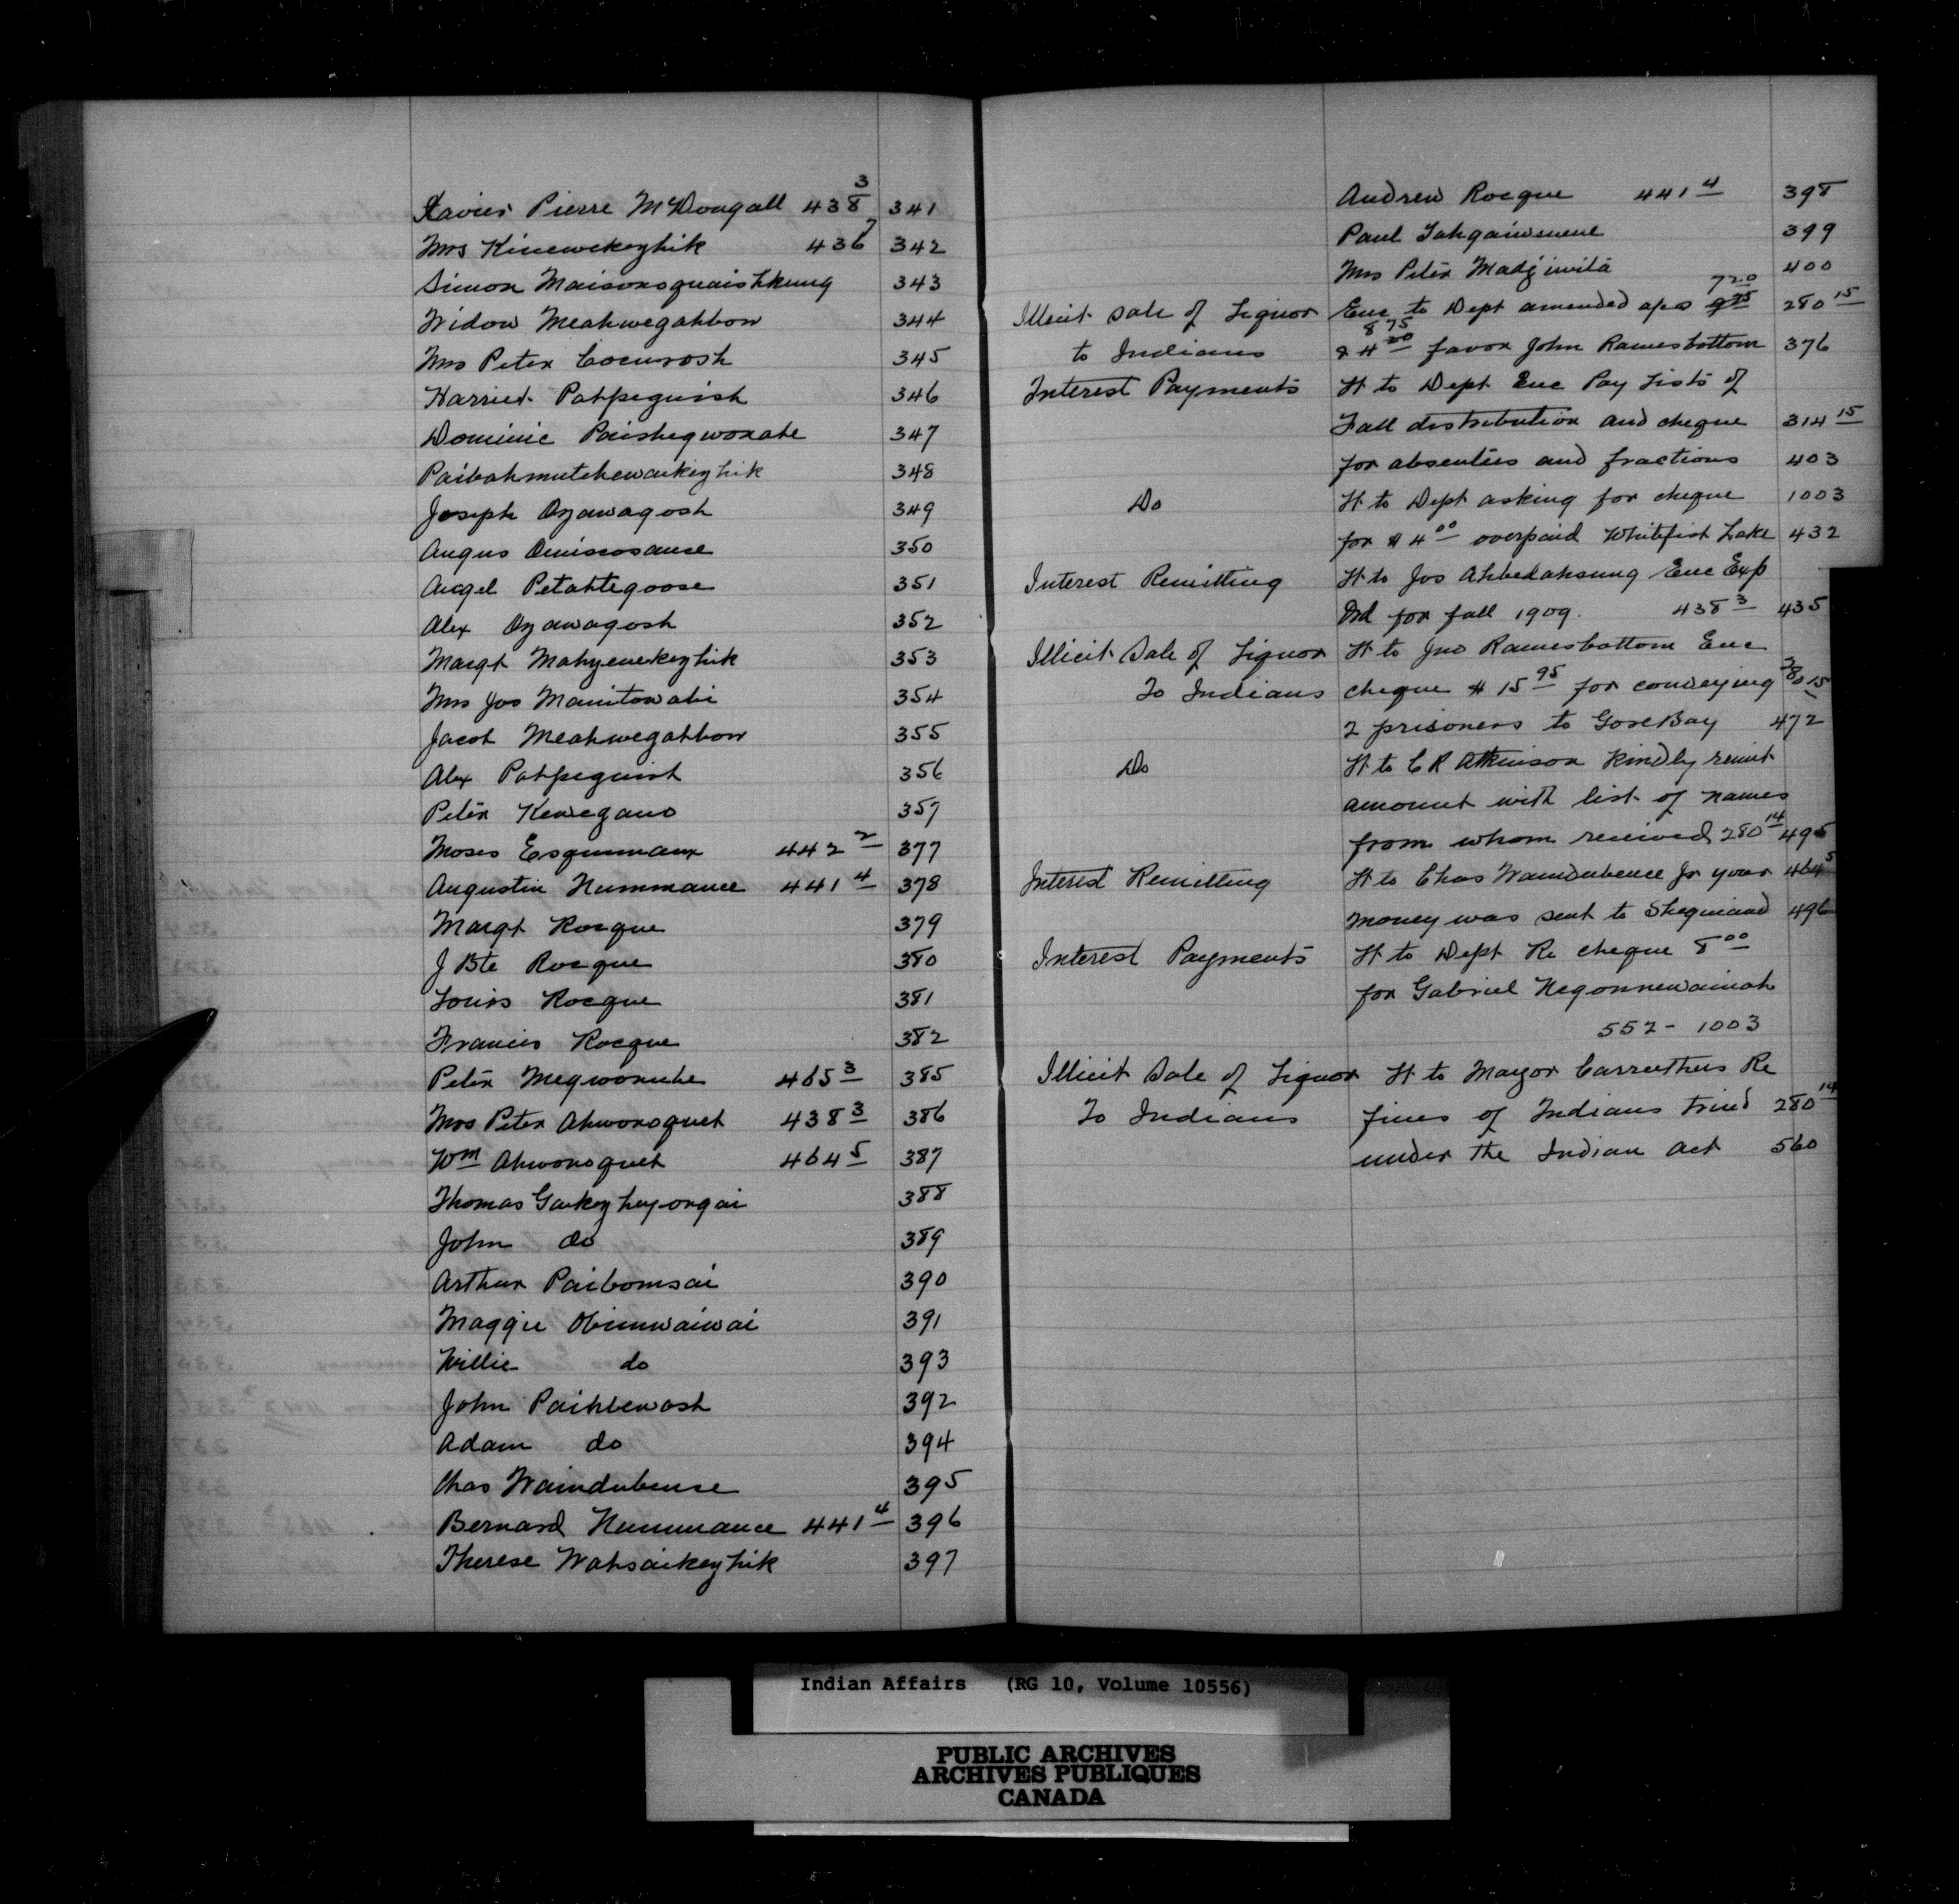 Xavier Pierre McDougall 438 3 341
Mrs Kinewekezhik 436 7 342
Simon Maisonoquaishkung 343
Widow Meahwegahbow 344
Mrs Peter Cocurosh 345
Harriet Pahpeguish 346
Dominic Paishegwonabe 347
Paibahmutchewaikezhik 348
Joseph Ozawagosh 349
Angus Ominsosause 350
Angel Petahtegoose 351
Alex Ozawagosh 352
Margt Mahyenekezhik 353
Mrs Jos Manitowabi 354
Jacob Meahwegahbow 355
Alex Pahpeguish 356
Peter Kewegano 357
Moses Esquimaux 442 2 377
Augustin Nummance 441 4 378
Margt Rocque 379
J Bte Rocque 380
Louis Rocque 381
Francis Rocque 382
Peter Megwonube 465 3 385
Mrs Peter Ahwonoquet 438 3 386
Wm Ahwonoquet 464 5 387
Thomas Gaukezheyongai 388
John do 389
Arthur Paibomsai 390
Maggie Obimwaiwai 391
Willie do 393
John Paihbewash 392
Adam do 394
Chas Waindubence 395
Bernard Nummance 441 4 396
Therese Wahsaikezhik 397
Andrew Rocque 441 4 398
Paul Tahgaiwenene 399
Mrs Peter Madjiwita 400
Illicit Sale of Liquor Enc to Dept amended a/cs 7 20 9 75 280 15
to Indians 8 75 & 4 20 favor John Ramesbottom 376
Interest Payments Lt to Dept Enc Pay Lists of
Fall distribution and cheque 314 15
for absentees and fractions 403
Do Lt to Dept asking for cheque 1003
for $4 00 overpaid Whitefish Lake 432
Interest Remitting Lt to Jos Ahbedahsung Enc Exp
Ord for fall 1909. 438 3 435
Illicit Sale of Liquor Lt to Jno Ramesbottom Enc
To Indians cheque $15 95 for conveying 280 15
2 prisoners to Gore Bay 472
Do Lt to C R Atkinson Kindly remit
amount with list of names
from whom received 280 14 495
Interest Remitting Lt to Chas Waindubence Jr your 464 5
money was sent to Sheguiand 496
Interest Payments Lt to Dept Re cheque 8 00
for Gabriel Negonnewainah
552 - 1003
Illicit Sale of Liquor Lt to Mayor Carruthers Re
To Indians fines of Indians tried 280 14
under the Indian Act 560
Indian Affairs (RG 10, Volume 10556)
PUBLIC ARCHIVES
ARCHIVES PUBLIQUES
CANADA